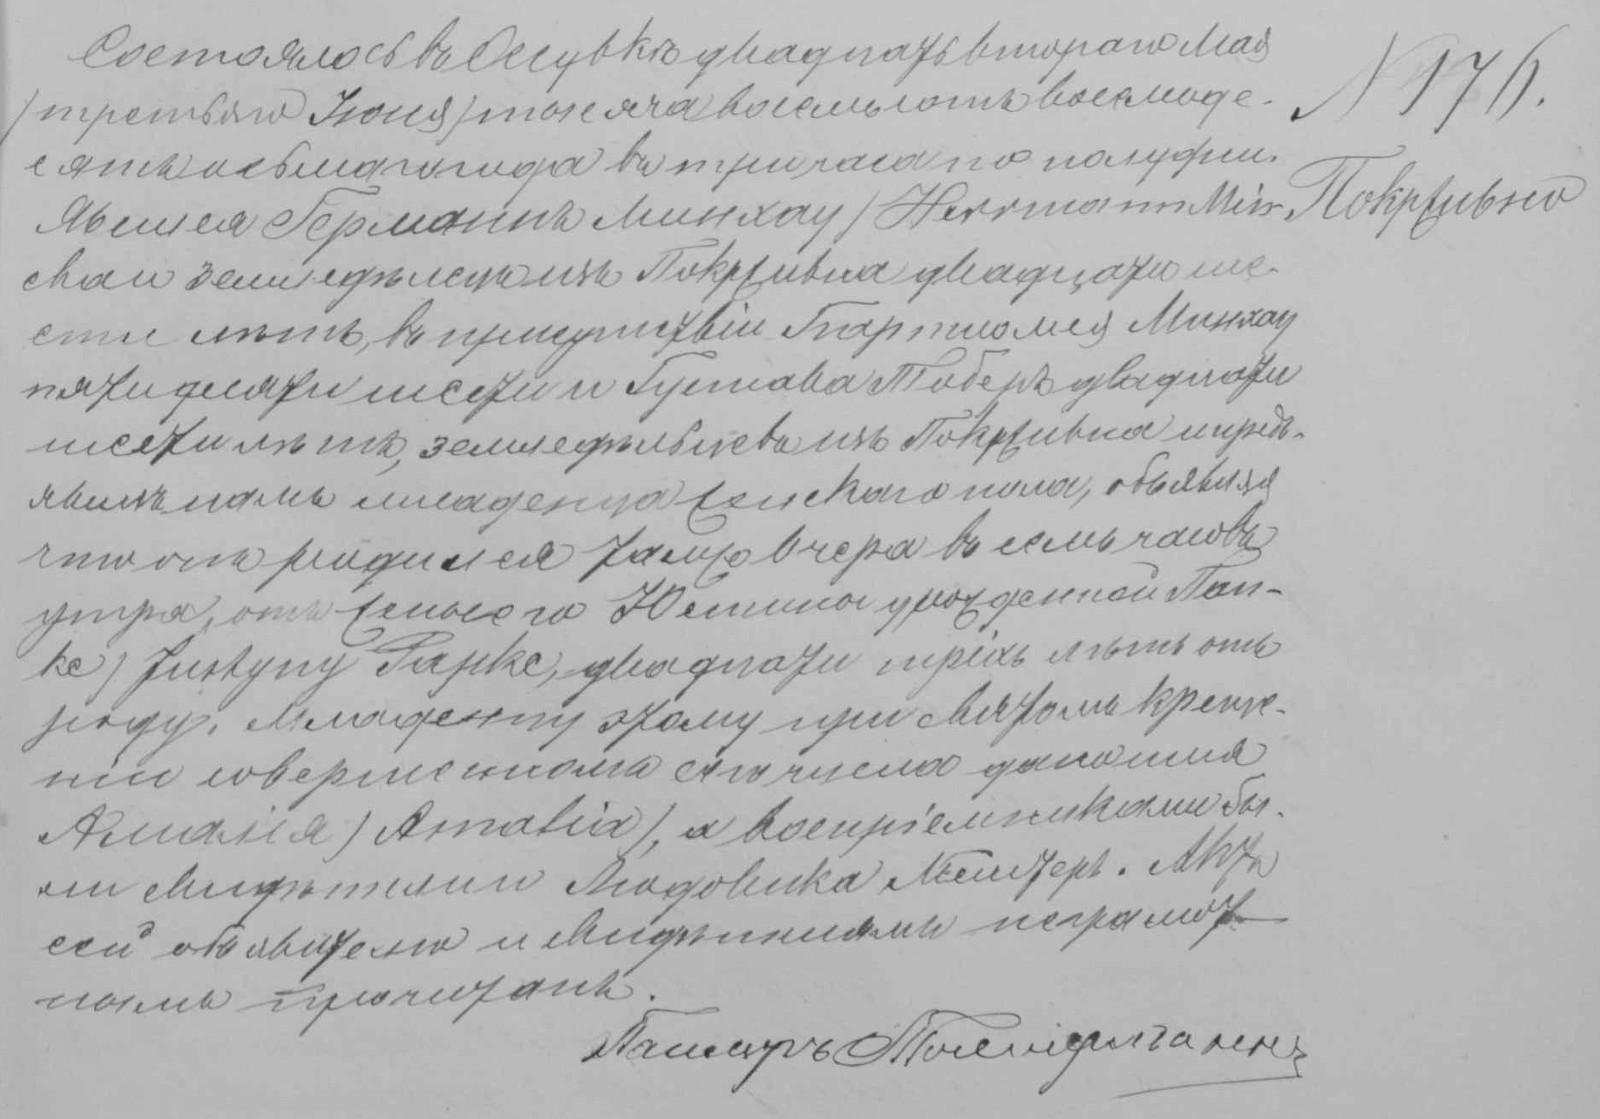 Состоялось въ Осувкѣ двадцать втораго Мая
/третьяго Іюня/ тысяча восемьсотъ восемьде-
сятъ осьмаго года въ три часа по полудни.
Явился Германнъ Минхау /Herrmann Min-
chau земледѣлецъ изъ Покрживна двадцати ше-
сти лѣтъ, въ присутствіи Бартломея Минхау
пятидесяти шести и Густава Тоберъ двадцати
шести лѣтъ, земледѣльцевъ изъ Покрживна и предъ-
явилъ намъ младенца женскаго пола, объявляя
что онъ родился тамъ вчера въ семь часовъ
утра, отъ жены его Юстины урожденной Пан-
ке / Justyny Panke, двадцати трехъ лѣтъ отъ
роду. Младенцу этому при Святомъ Креще-
ніи совершенномъ сего числа дано имя
Амалія /Amalia/, а воспріемниками бы-
ли свидѣтели и Людовика Мельтеръ. Актъ
сей объявителю и свидѣтелямъ неграмот-
нымъ прочитанъ.
Пасторъ
N 176.
Покрживно